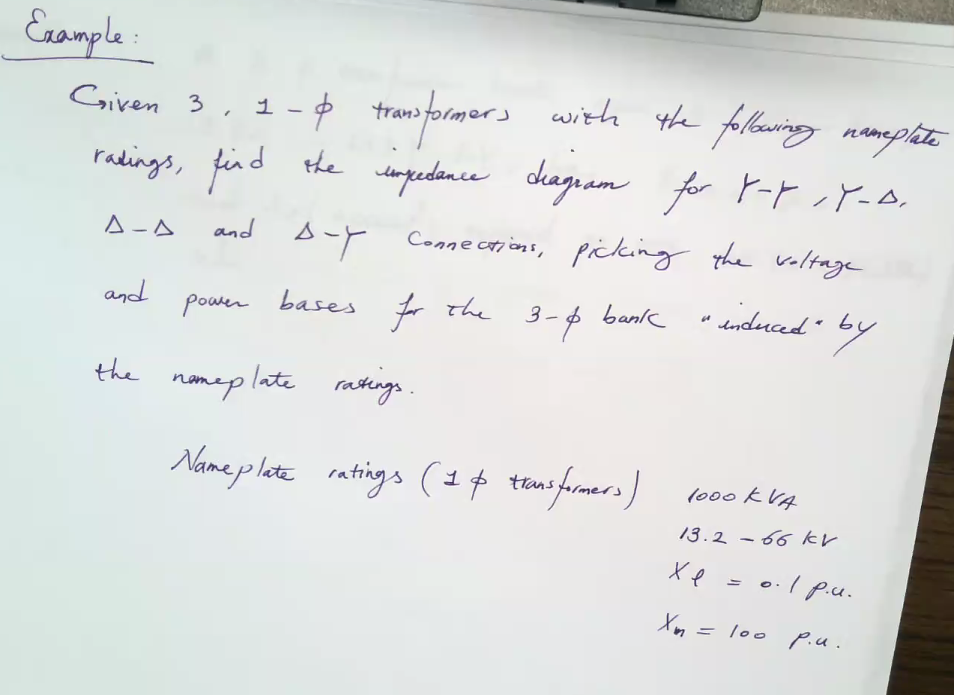 Example:
Given 3, 1-ϕ transformers with the following nameplate
ratings, find the impedance diagram for Y-Y, Y-Δ,
Δ-Δ and Δ-Y connections, picking the voltage
and power bases for the 3-ϕ bank "induced" by
the nameplate ratings.
Nameplate ratings (1ϕ transformers) 1000 KVA
13.2 - 66 KV
Xl = 0.1 p.u.
Xm = 100 p.u.